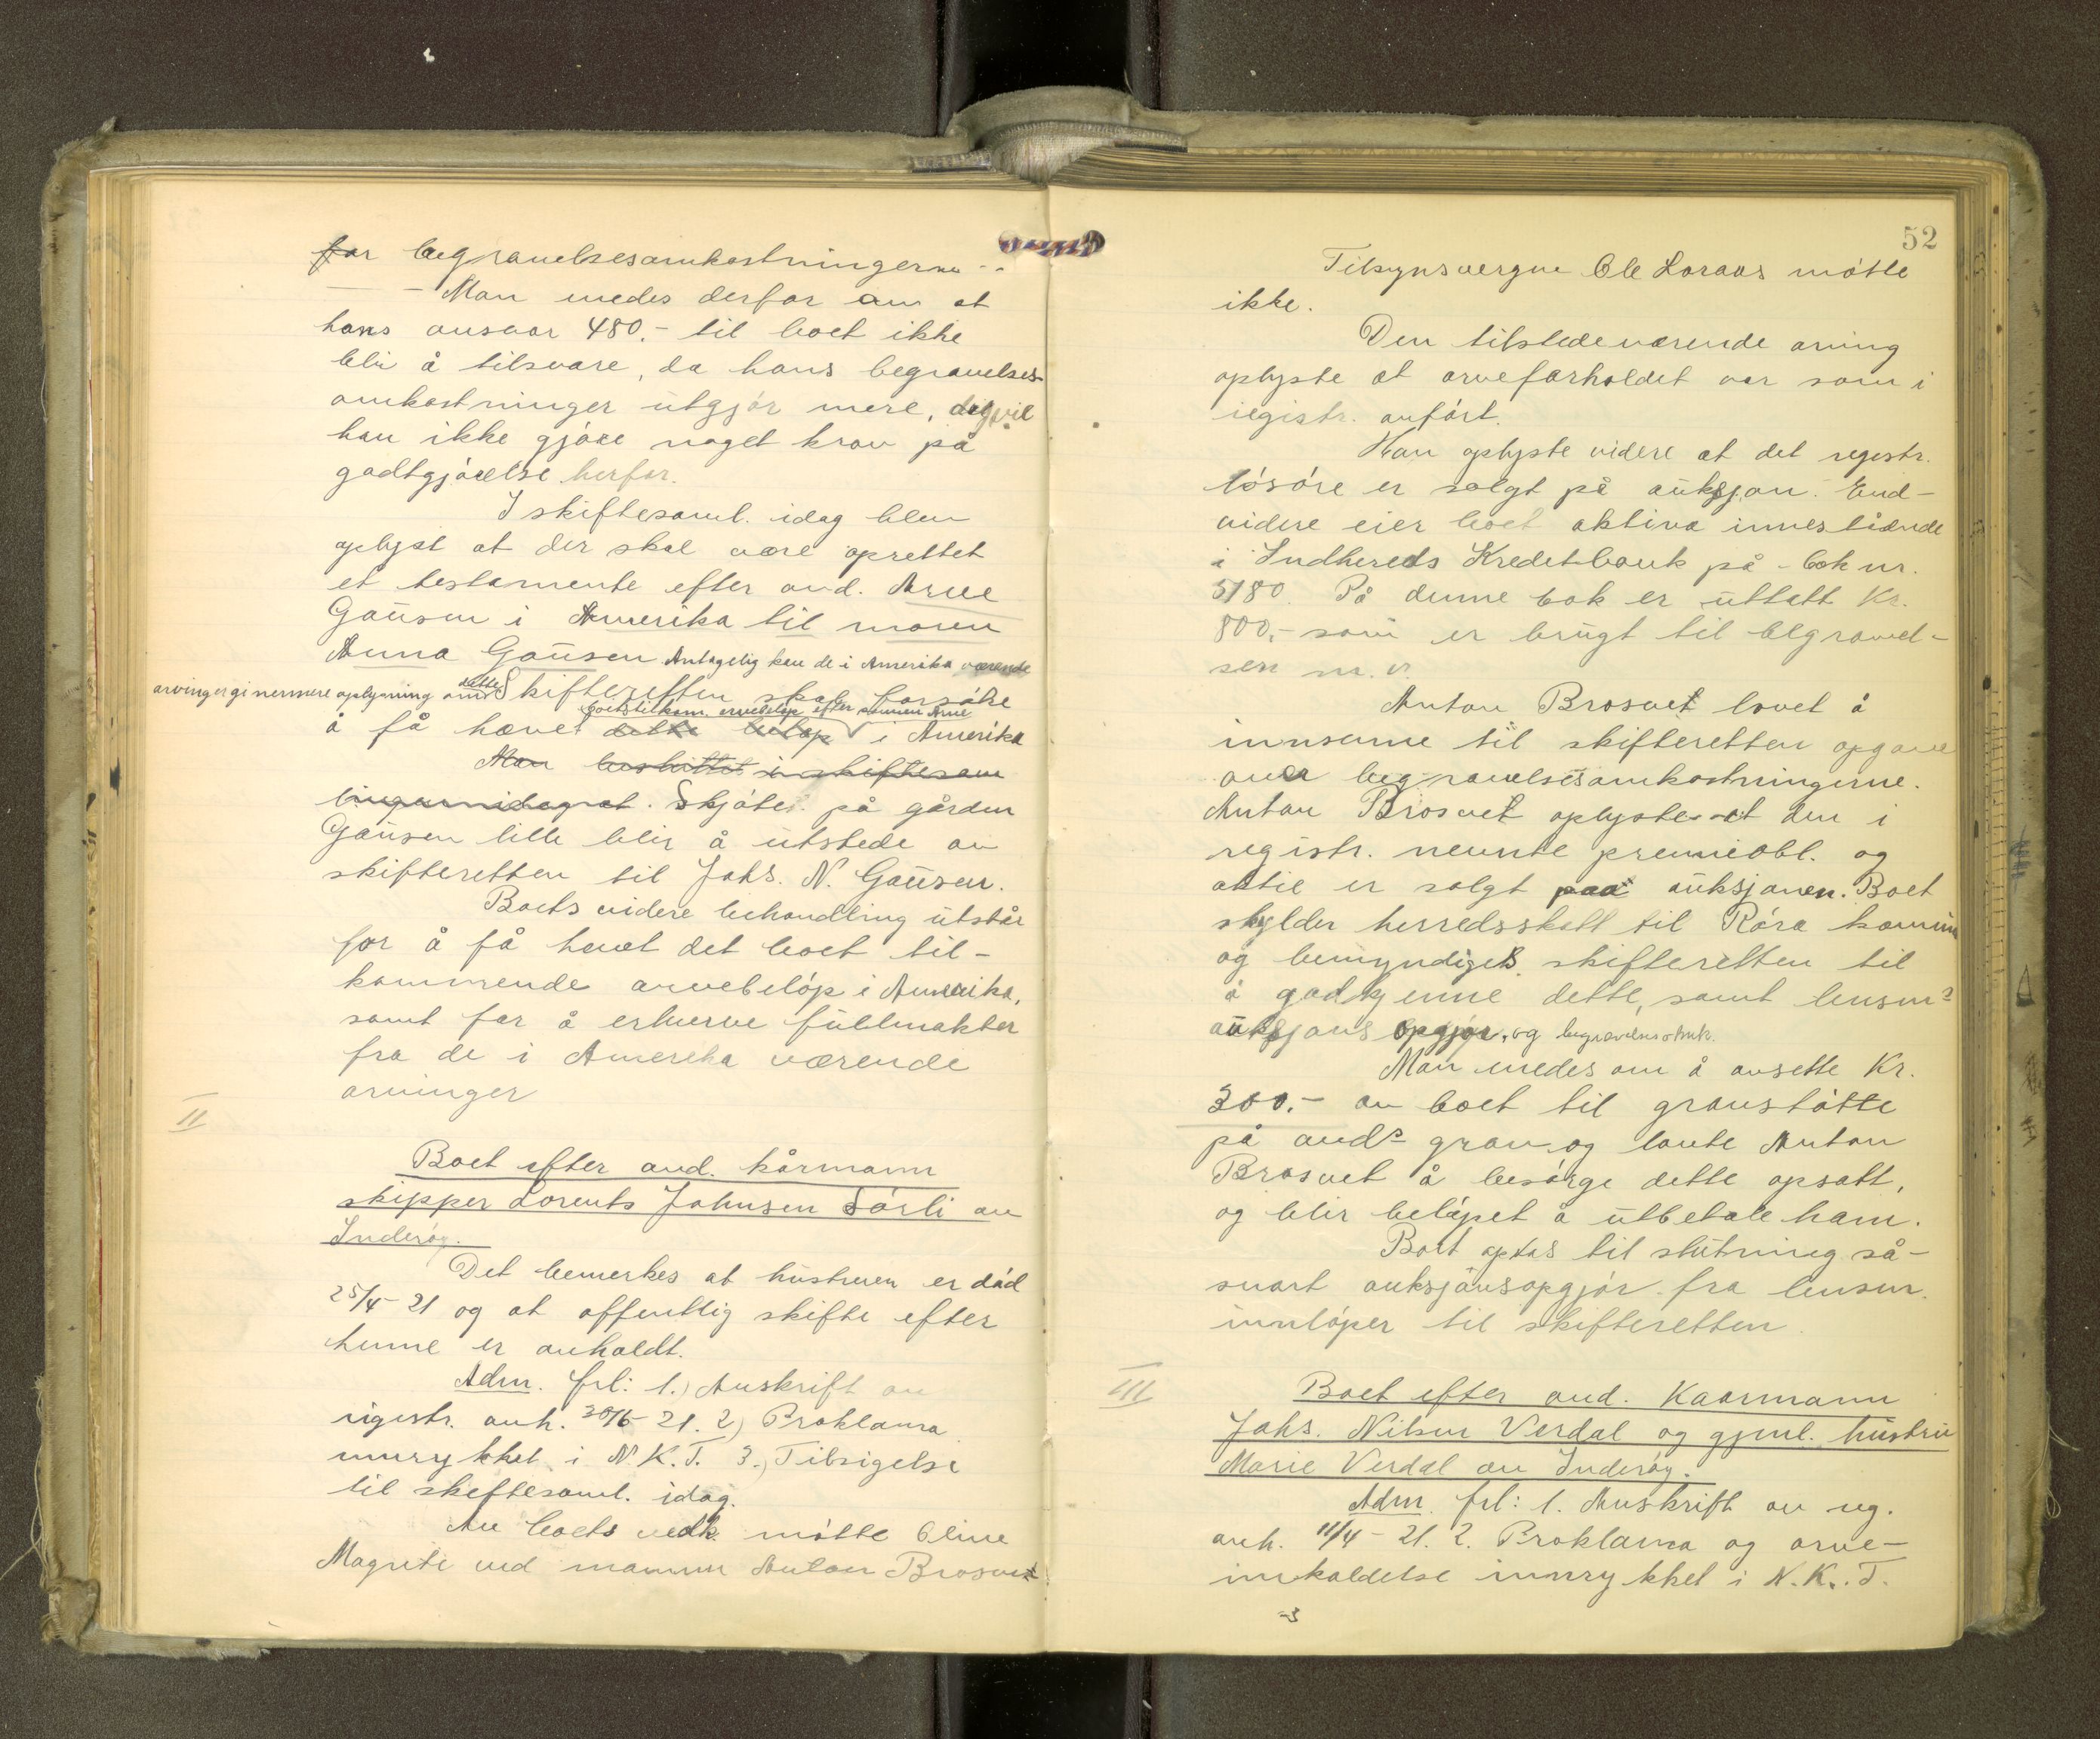 for begravelsesomkostningerne..
- Man enedes derfor om at
hans ansvar 480.- til boet ikke
blir å tilsvare, da hans begravelses-
omkostninger utgjør mere, dog vil
han ikke gjøre noget krav på
godtgjørelse herfor.
I skiftesaml. idag blev
oplyst at der skal være oprettet
et testamente efter avd. Arne
Gausen i Amerika til moren
Anna Gausen Antagelig kan de i Amerika værende
arvinger gi nermere oplysning om dette Skifteretten skal forsøke
boets tilkom. arvebeløp efter sønnen Arne
å få hævet dette beløp i Amerika
Man besluttet i skiftesam
lingen idag at. Skjøte på gården
Gausen lille blir å utstede av
skifteretten til Johs. N. Gausen.
Boets videre behandling utstår
for å få hævet det boet til-
kommende arvebeløp i Amerika,
samt for å erhverve fullmakter
fra de i Amerika værende
arvinger
II
Boet efter avd. kårmann
skipper Lorents Johnsen Sørli av
Inderøy.
Det bemerkes at hustruen er død
25/4-21 og at offentlig skifte efter
henne er anholdt.
Adm. frl: 1.) Auskrift av
registr. avh. 30/6-21. 2) Proklama
innrykket i N.K.T. 3.) Tilsigelse
til skiftesaml. idag.
Av boets vedk. møtte Oline
Magrete ved mannen Anton Brosvet
52
Tilsynsvergen Ole Loraas møtte
ikke.
Den tilstedeværende arving
oplyste at arveforholdet var som i
registr. anført.
Han oplyste videre at det registr.
løsøre er solgt på auksjon. End-
videre eier boet aktiva innestående
i Indhereds Kreditbank på - bok nr.
5180 På denne bok er uttatt Kr.
800,- som er brugt til begravel-
sen m.v.
Anton Brosvet lovet å
innsenne til skifteretten opgave
over begravelsesomkostningerne.
Anton Brosvet oplyste at den i
registr. nevnte premieobl. og
aktie er solgt paa auksjonen. Boet
skylder herredsskatt til Røra kommune
og bemyndiges skifteretten til
å godkjenne dette, samt lensms
auksjons opgjør, og begravelsesomk.
Man enedes om å avsette Kr.
300.- av boet til gravstøtte
på avds grav og lovte Anton
Brosvet å besørge dette opsatt,
og blir beløpet å utbetale ham.
Boet optas til slutning så-
snart auksjonsopgjør fra lensm.
innløper til skifteretten.
III
Boet efter avd. Kaarmann
Johs. Nilsen Verdal og gjenl. hustru
Marie Verdal av Inderøy.
Adm. frl: 1. Auskrift av reg.
avh. 11/4-21. 2. Proklama og arve-
innkaldelse innrykket i N.K.T.
-3